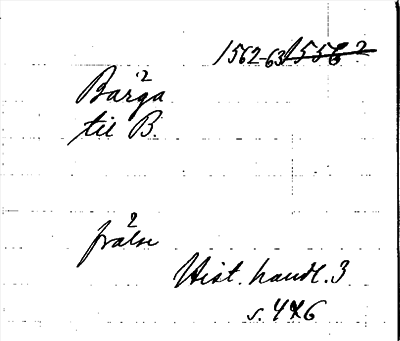 1562-63 1556 2
Barga
til B.
frälse
Hist. handl. 3
s. 476